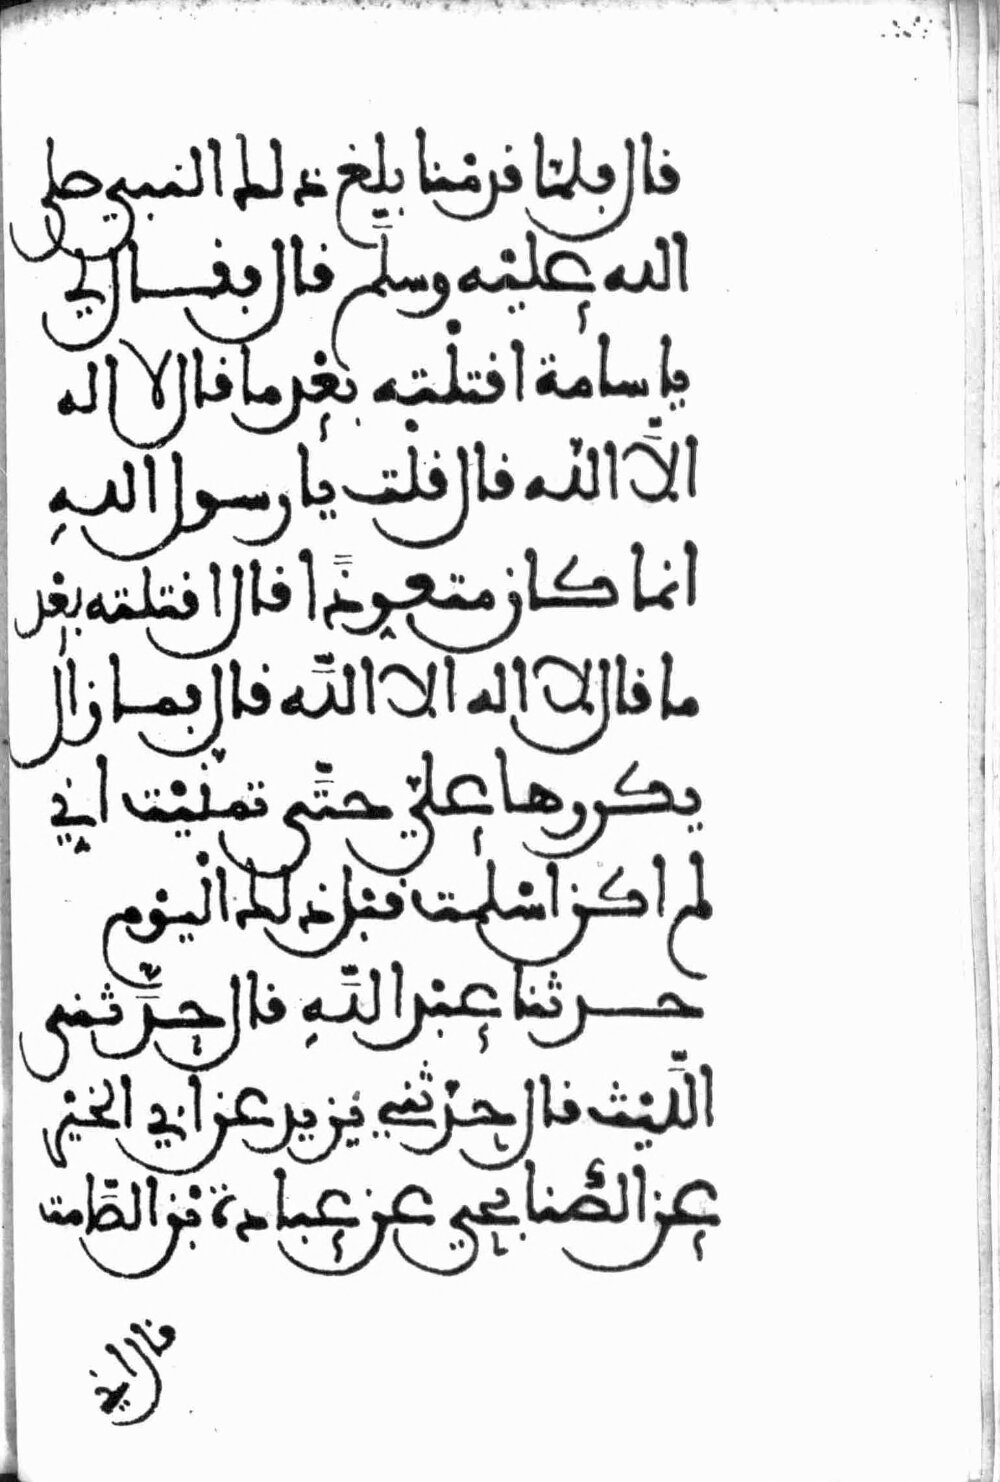 قال فلمّا قدمْنا بلغ ذلك النبي صلى
الله عليْه وسلّم قال فقال لي
ياسامة اقتلْته بعْد ما قال لا اله
الاّ اللّه قال قلْت يا رسول اللهِ
انما كان متعوِذًا قال اقتلته بعْد
ما قال لا اله الا اللّه قال فما زال
يكررها عليّ حتّى تمنّيْت اني
لم اكن اسْلمت قبْل ذلك الْيوْم
حدثنا عبْد اللّهِ قال حدّثنى
اللّيْث قال حدّثني يزيد عن ابي الخيْر
عن الصُّنابحي عن عبادة بْن الصّامت
قال اني